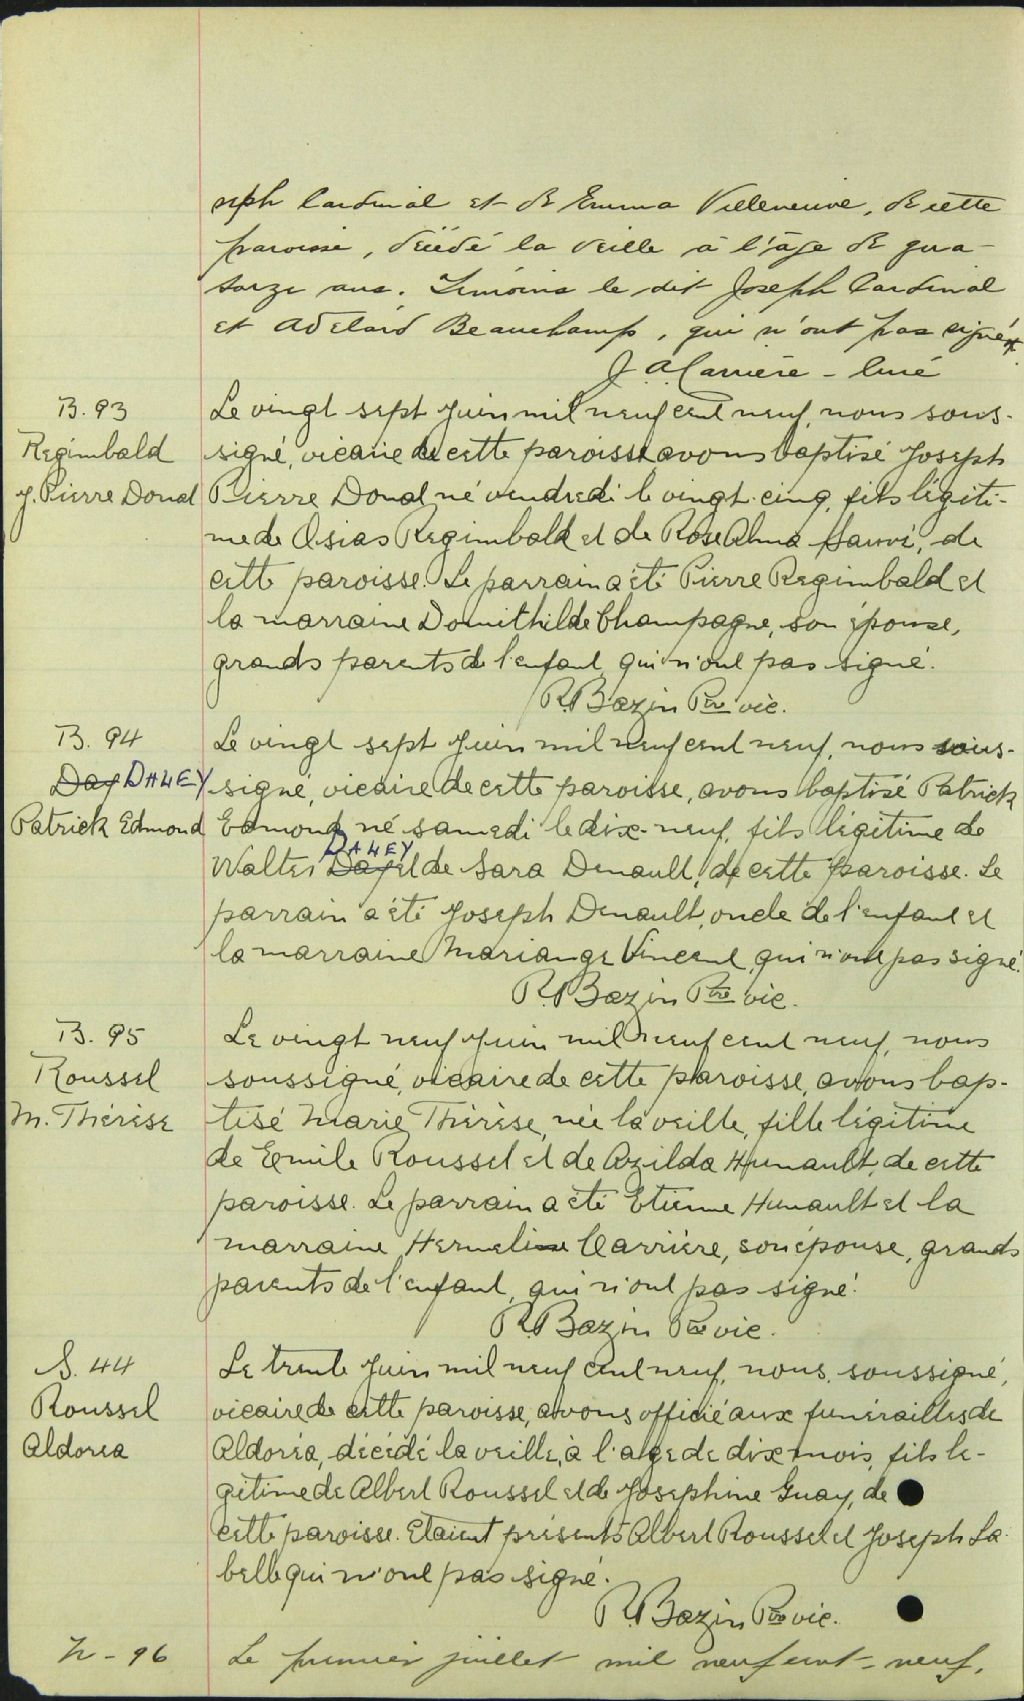 seph Cardinal et de Emma Villeneuve, de cette
paroisse, décédé la veille à l'âge de qua-
torze ans. Témoins le dit Joseph Cardinal
et Adélard Beauchamp, qui n'ont pas signé.
J. A. Carrière - Curé
B. 93
Regimbald
J. Pierre Donal
Le vingt sept Juin mil neuf cent neuf, nous sous-
signé, vicaire de cette paroisse, avons baptisé Joseph
Pierre Donal né vendredi le vingt-cinq, fils légiti-
me de Osias Regimbald et de Rose Alma Sauvé, de
cette paroisse. Le parrain a été Pierre Regimbald et
la marraine Domithilde Champagne, son épouse,
grands parents de l'enfant, qui n'ont pas signé.
R. Bazin Ptre vic.
B. 94
Day DAHEY
Patrick Edmond
Le vingt sept Juin mil neuf cent neuf, nous sous-
signé, vicaire de cette paroisse, avons baptisé Patrick
Edmond né samedi le dix-neuf, fils légitime de
DAHEY
Walter Day et de Sara Denault, de cette paroisse. Le
parrain a été Joseph Denault, oncle de l'enfant et
la marraine Mariange Vincent, qui n'ont pas signé.
R. Bazin Ptre vic.
B. 95
Roussel
M. Thérèse
Le vingt neuf Juin mil neuf cent neuf, nous
soussigné, vicaire de cette paroisse, avons bap-
tisé Marie Thérèse, née la veille, fille légitime
de Emile Roussel et de Azilda Hunault, de cette
paroisse. Le parrain a été Etienne Hunault et la
marraine Hermeline Carrière, son épouse, grands
parents de l'enfant, qui n'ont pas signé.
R. Bazin Ptre vic.
S. 44
Roussel
Aldoréa
Le trente Juin mil neuf cent neuf, nous, soussigné,
vicaire de cette paroisse, avons officié aux funérailles de
Aldoréa, décédé la veille, à l'age de dix mois, fils lé-
gitime de Albert Roussel et de Josephine Guay, de
cette paroisse. Etaient présents Albert Roussel et Joseph La-
belle qui n'ont pas signé.
R. Bazin Ptre vic.
N - 96
Le premier juillet mil neuf cent - neuf,